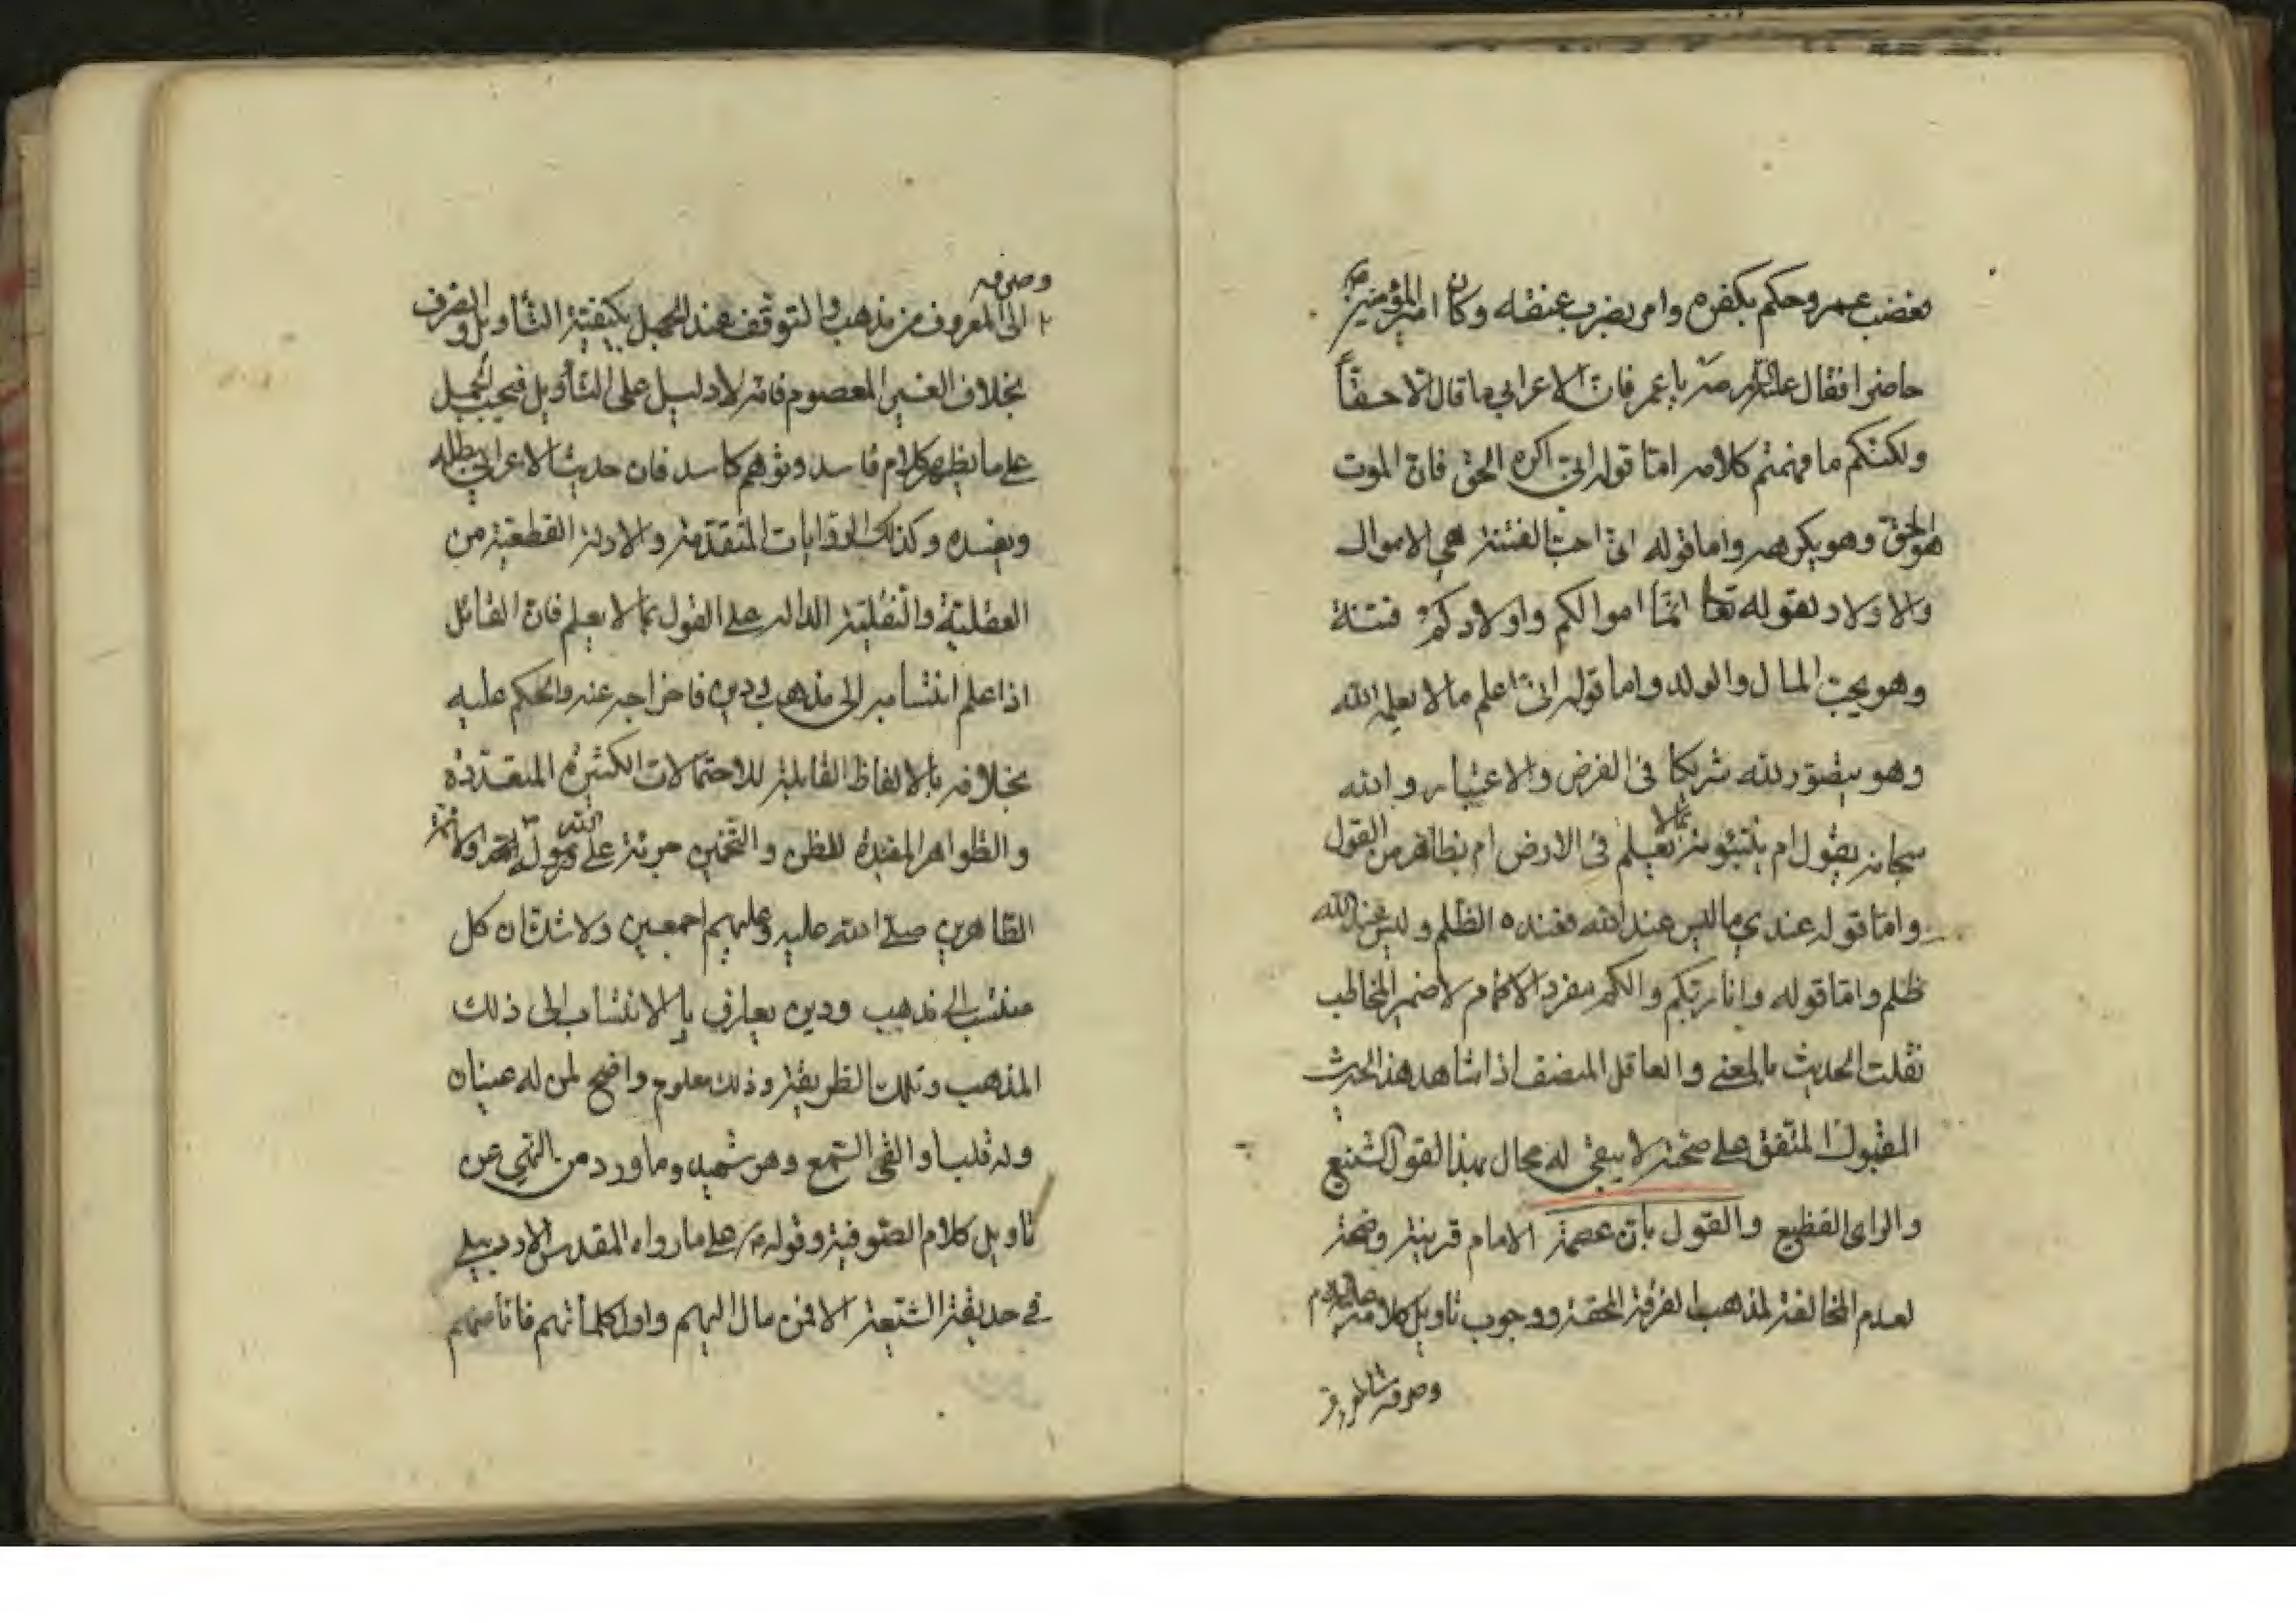 فغضب عمر وحكم بكفره وامر بضرب عنقه وكان امير المؤمنين
حاضرا فقال يا عمر فان الاعرابي ما قال الا حقاً
ولكنكم ما فهمتم كلامه اما قوله اني اكره الحق فان الموت
هو الحق وهو يكرهه واما قوله اني احب الفتنة هي الاموال
والاولاد لقوله تعا انما اموالكم واولادكم فتنة
وهو يحب المال والولد واما قوله اني اعلم ما لا يعلمه الله
وهو يتصور لله شريكا في الفرض والاعتبار والله
سبحانه يقول ام تنبئونه بما لا يعلم في الارض ام بظاهر من القول
واما قوله عندي ما ليس عند الله فعنده الظلم وليس عند الله
ظلم واما قوله وانا ربكم والكم مفرد الاكمام لا ضمير المخاطب
نقلت الحديث بالمعنى والعاقل المنصف اذا شاهد هذا الحديث
المقبول المتفق على صحته لا يبقى له مجال بهذا القول الشنيع
والراي الفظيع والقول بان عصمة الامام قرينة وضحة
لعدم المخالفة لمذهب الفرقة المحقة ووجوب تاويل كلامه عليه السلام
وصرفه
وصرفه
الى المعروف من مذهبه والتوقف عند الجهل بكيفية التأويل والصرف
بخلاف الغير المعصوم فانه لا دليل على التأويل فيجب الحمل
على ما يظهر كلام فاسد وتوهم كاسد فان حديث الاعرابي يبطله
ويفسده وكذلك الروايات المتقدمة والادلة القطعية من
العقلية والنقلية الدالة على القول بما لا يعلم فان القائل
اذا علم انتسابه الى مذهب ودين فاخراجه عنه والحكم عليه
بخلافه بالالفاظ القابلة للاحتمالات الكثيرة المتعددة
والظواهر المفيدة للظن والتخمين جرئة على الله ورسوله والائمة
الطاهرين صلى الله عليه وعليهم اجمعين ولا شك ان كل
منتسب الى مذهب ودين يعارف بالانتساب الى ذلك
المذهب وتلك الطريقة وذلك معلوم واضح لمن له عينان
وله قلب او القى السمع وهو شهيد وما ورد من النهي عن
تاويل كلام الصوفية وقوله على ما رواه المقدس الاردبيلي
في حديقة الشيعة الا فمن مال اليهم واول كلماتهم فانا منهم